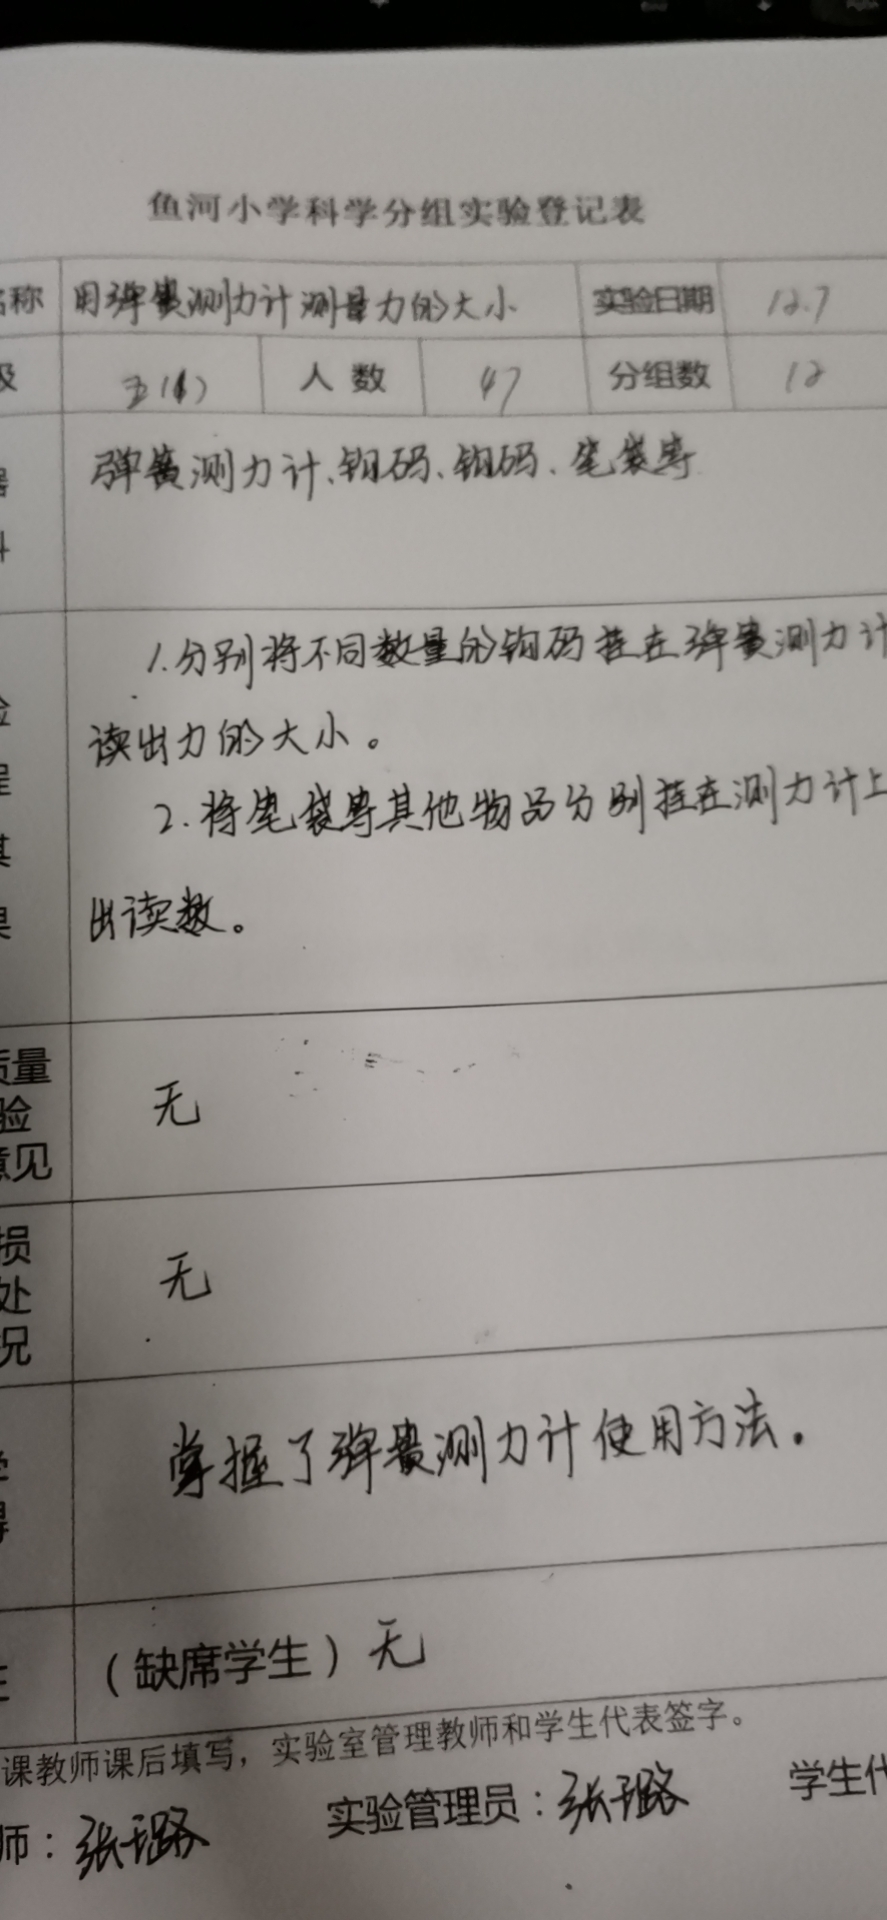 鱼河小学科学分组实验登记表
名称 用弹簧测力计测量力的大小 实验日期 12.7
级 五(1) 人数 47 分组数 12
器 弹簧测力计、钩码、钩码、笔袋等
料
1.分别将不同数量的钩码挂在弹簧测力计
验 读出力的大小。
程 2.将笔袋等其他物品分别挂在测力计上
其
果 出读数。
质量
验 无
意见
损
处 无
况
学 掌握了弹簧测力计使用方法。
得
注 (缺席学生)无
课教师课后填写,实验室管理教师和学生代表签字。
师:张璐 实验管理员:张璐 学生代